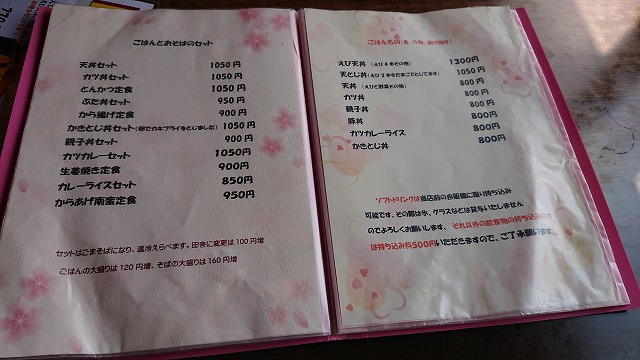 ごはんとおそばのセット
天丼セット 1050円
カツ丼セット 1050円
とんかつ定食 1050円
ぶた丼セット 950円
から揚げ定食 900円
かきとじ丼セット(卵でカキフライをとじました) 1050円
親子丼セット 900円
カツカレーセット 1050円
生姜焼き定食 900円
カレーライスセット 850円
からあげ南蛮定食 950円
セットはごまそばになり、温冷えらべます。田舎に変更は100円増
ごはんの大盛りは120円増、そばの大盛りは160円増
ごはんもの
えび天丼 (えび4本その他) 1300円
天とじ丼 (えび3本をたまごでとじてます) 1050円
天丼 (えびと野菜その他) 800円
カツ丼 800円
親子丼 800円
豚丼 800円
カツカレーライス 800円
かきとじ丼 800円
ソフトドリンクは当店前の自販機に限り持ち込み
可能です、その際は氷、グラスなどは貸与いたしません
のでよろしくお願いします、それ以外の飲食物の持ち込みの方
は持ち込み料500円いただきますので、ご了承願います。